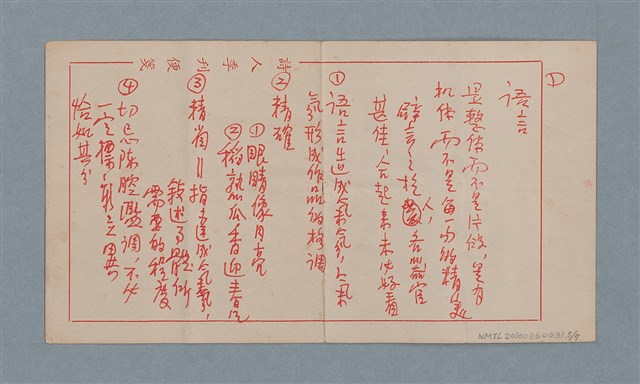 語言
是整体而不是片段,是有
机体而不是每一句的精美
譬言之於人,各器官
甚佳,合起來未必好看
① 語言造成氣氛,氣
氛形成作品的格調
② 精確
① 眼睛像月亮
② 稻熟瓜香迎春
③ 精省 指達成氣氛,
敘述了題所
需要的程度
④ 切忌陳腔濫調,不必
一定標新立異
恰如其分
詩人季刊便箋
NMTL20100360031 5/9